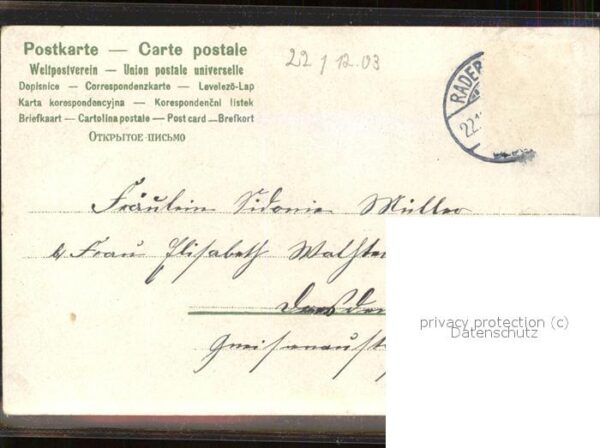 Postkarte — Carte postale
Weltpostverein — Union postale universelle
Dopisnice — Correspondenzkarte — Levelező-Lap
Karta korespondencyjna — Korespondenční listek
Briefkaart — Cartolina postale — Post card — Brefkort
Открытое письмо
22 / 12. 03
RADEB
22.
Fräulein Sidonie Müller
Frau Elisabeth
Dresden
privacy protection (c)
Datenschutz